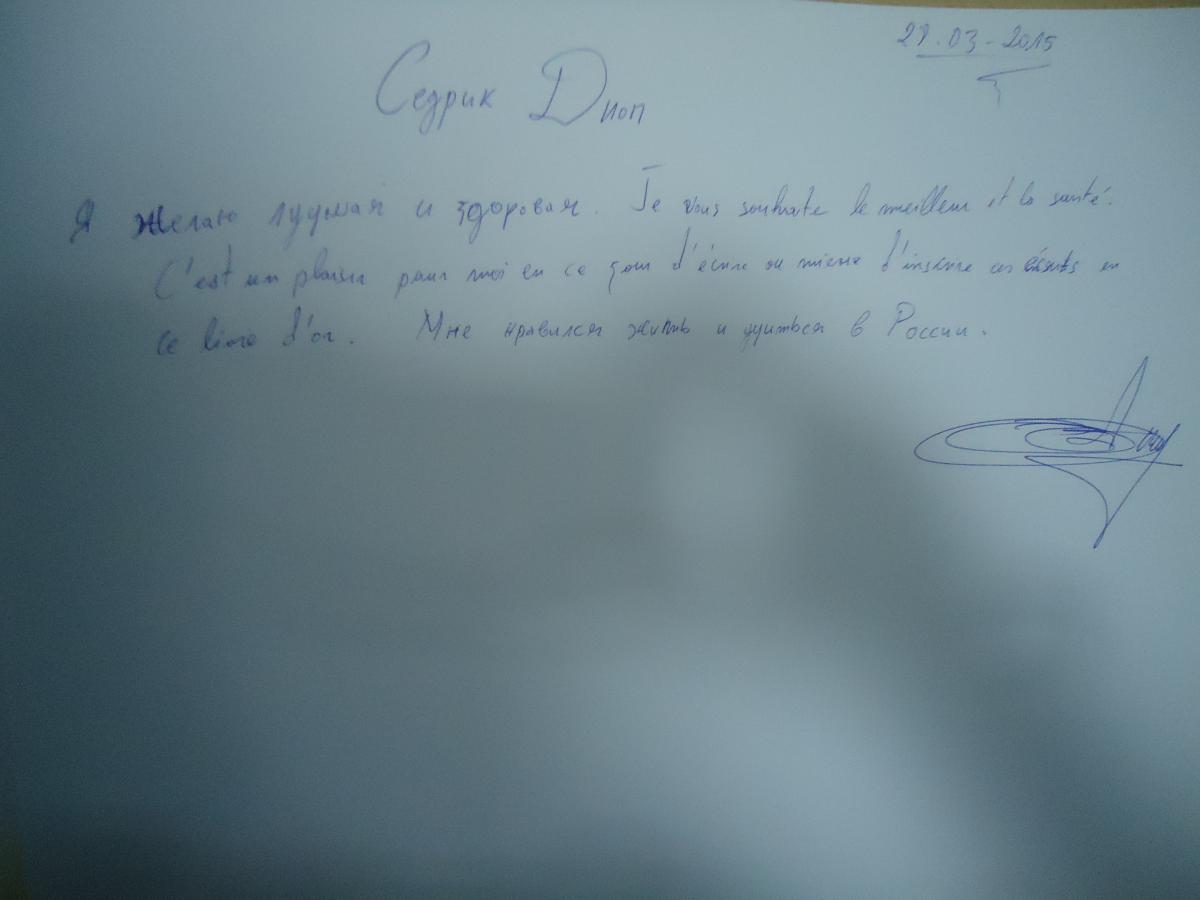 29.03-2015
Седрик Диоп
Я желаю лудмая и здоровая. Je vous souhaite le meilleur et la santé.
C'est un plaisir pour moi en ce jour d'écrire ou mieux d'inscrire ces écrits en
ce livre d'or. Мне нравился жить и уииться в России.